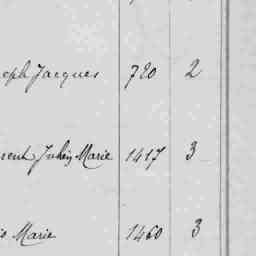 eph Jacques 720 2
rent Julien Marie 1417 3
Marie 1460 3